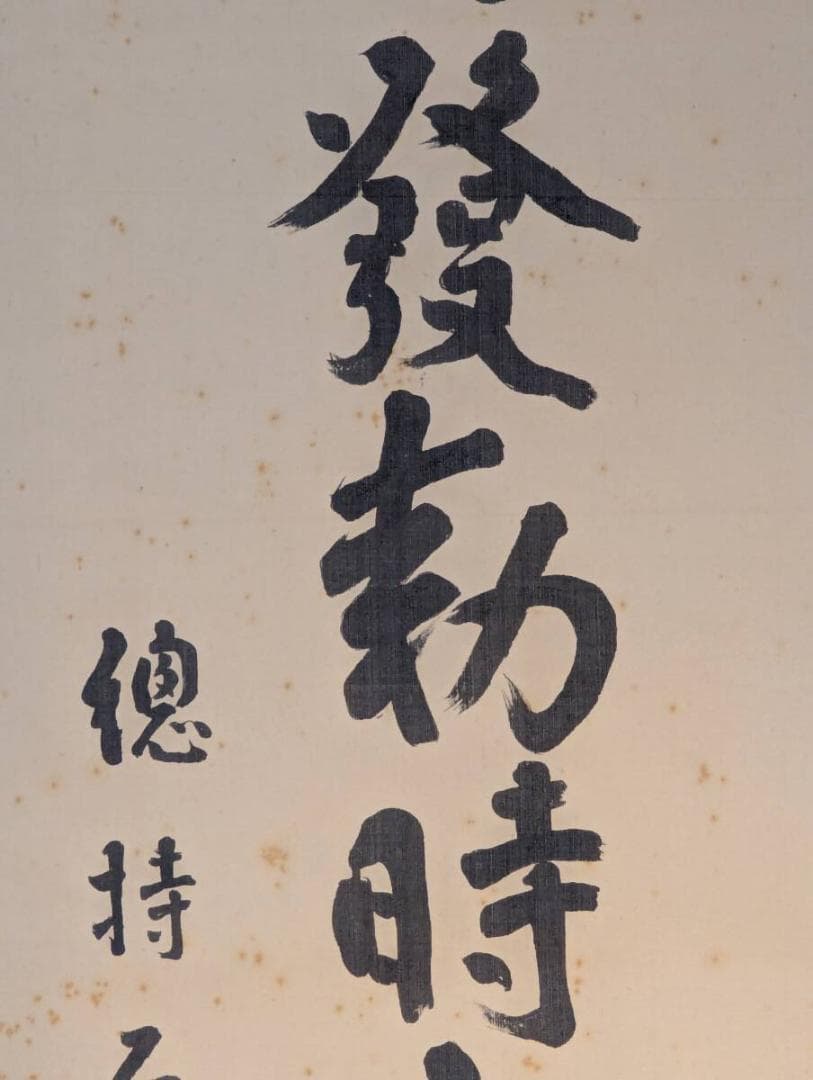 發動時
總持